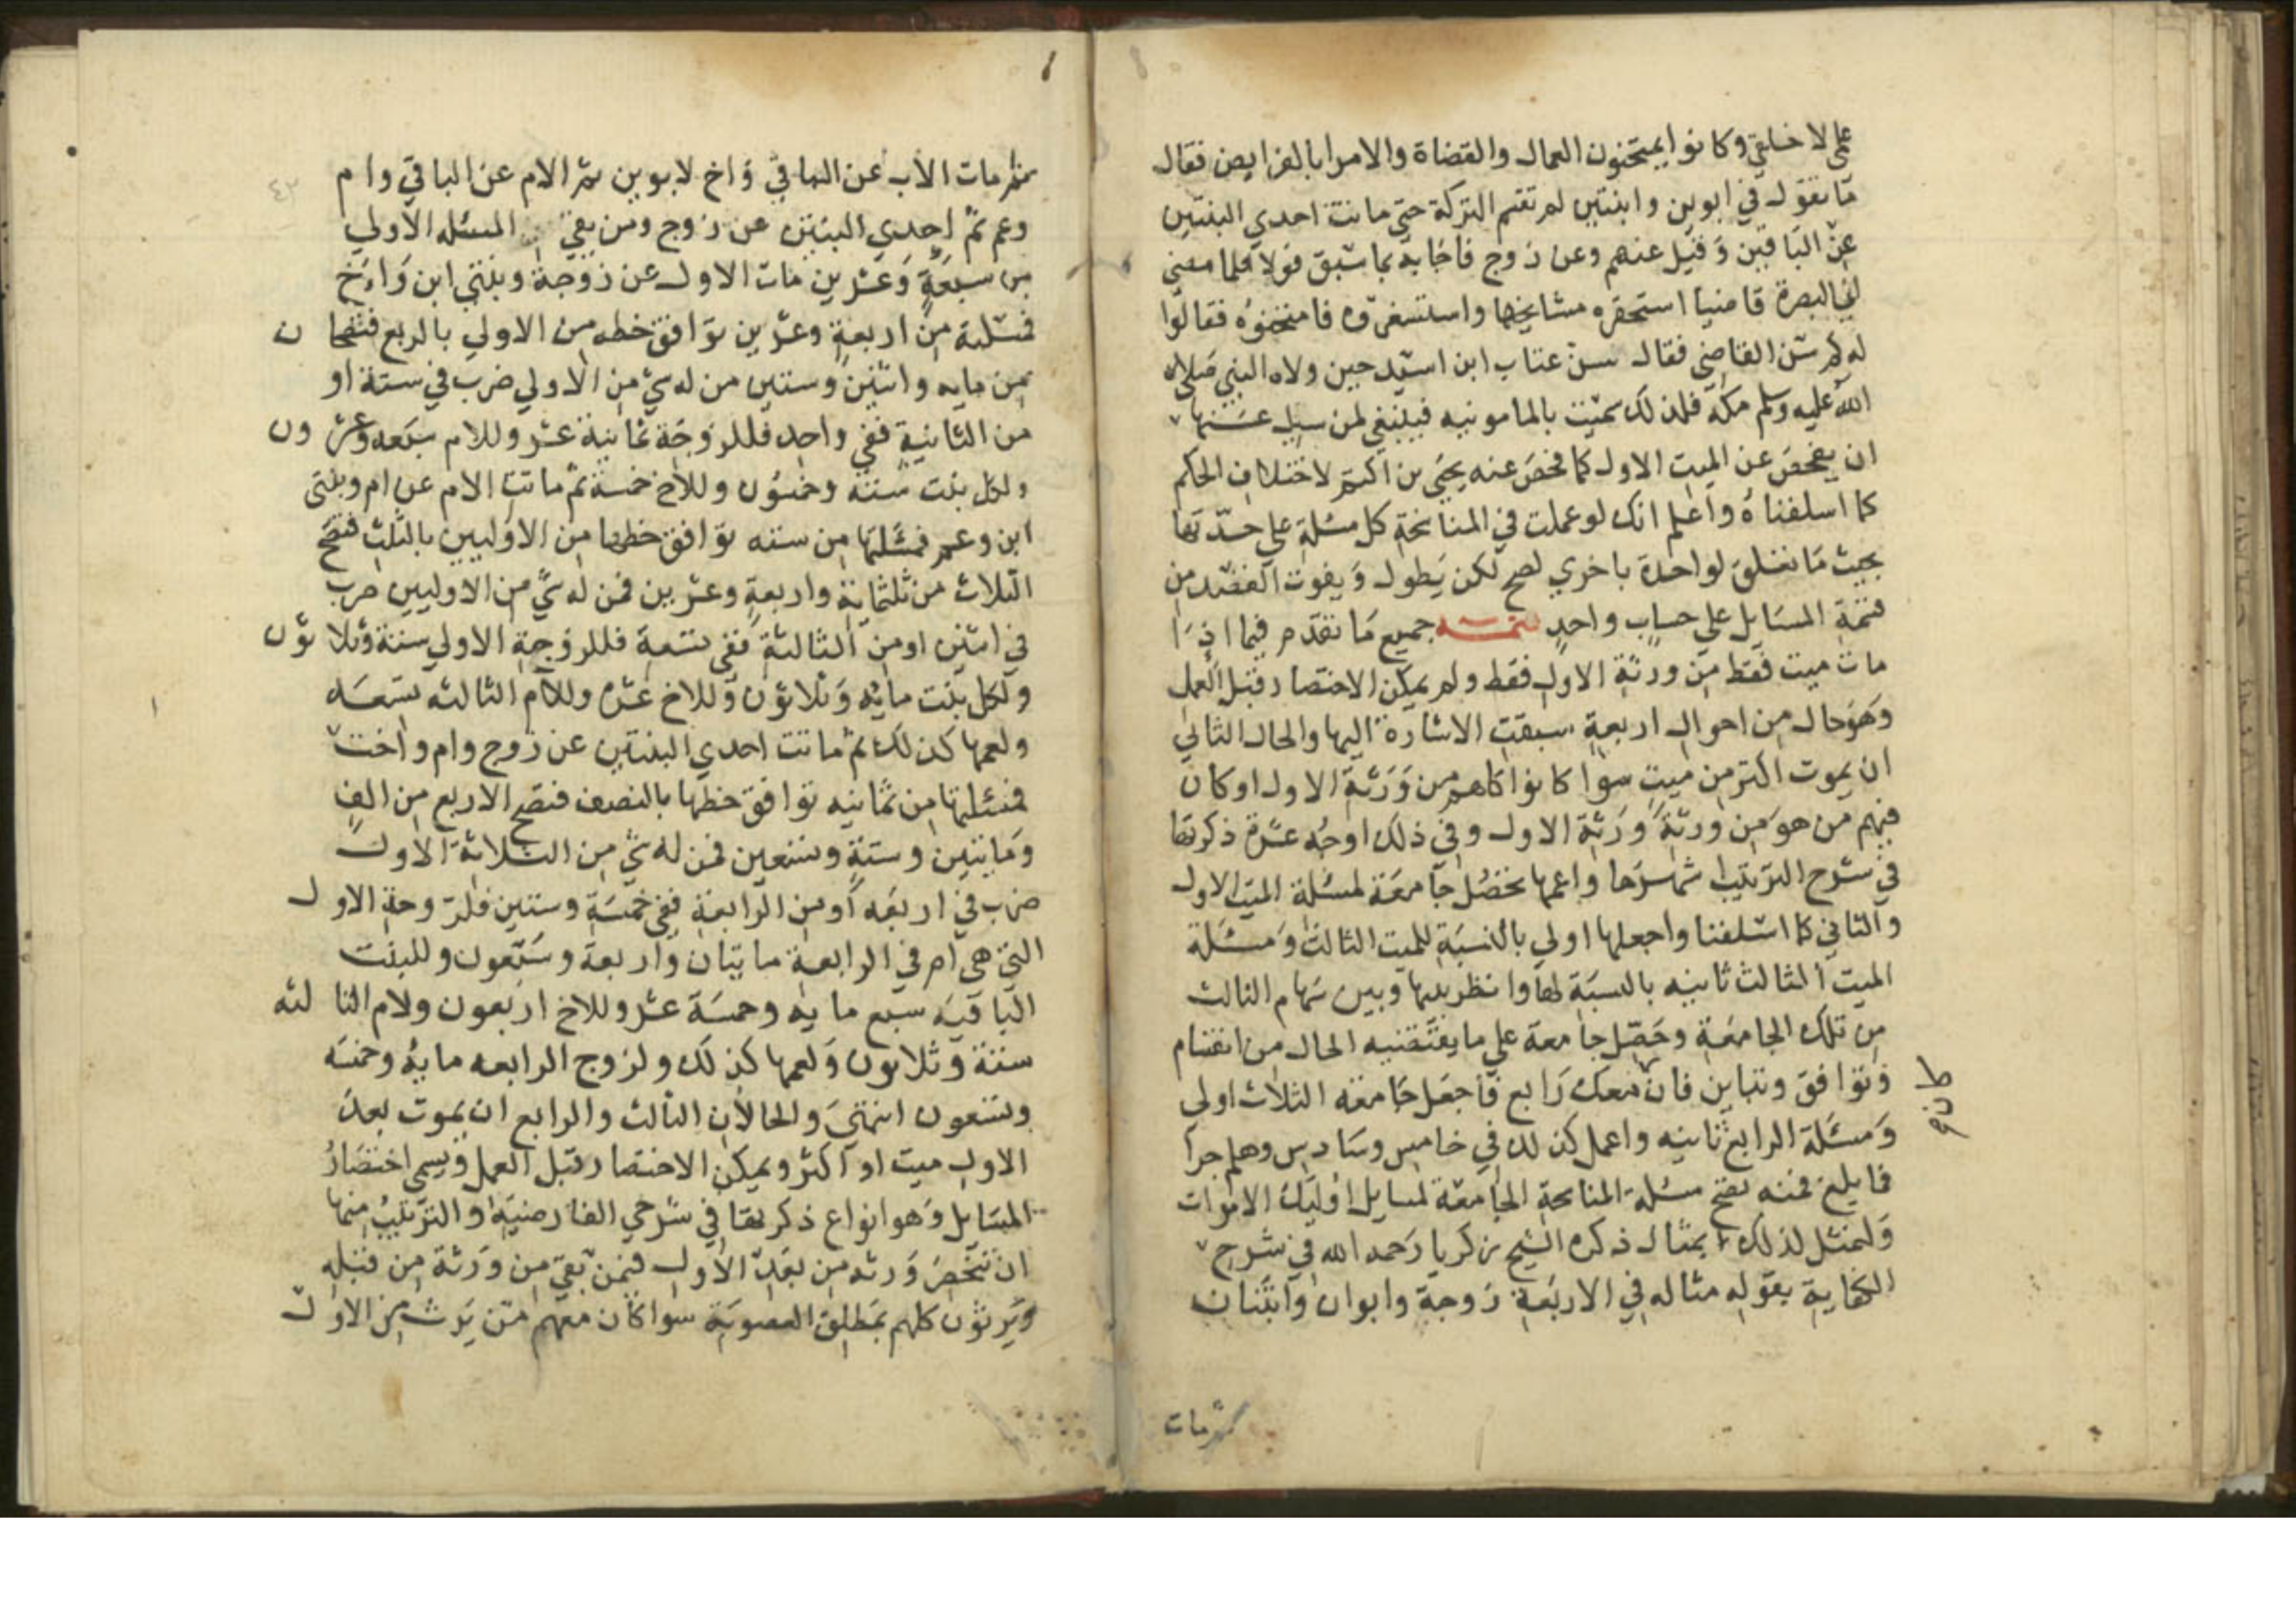 علي لا خلقي وكانوا يمتحنون العمال والقضاة والامرا بالفرايض فقال
ما تقول في ابوين وابنتين لم تقتسم التركة حتي ماتت احدي البنتين
عن الباقين وقيل عنهم وعن زوج فاجابه بما سبق فولاه فلما مضي
الي البصرة قاضيا استحقره مشايخها واستصغروه فامتحنوه فقالوا
له كم سن القاضي فقال سن عتاب ابن اسيد حين ولاه النبي صلي
الله عليه وسلم مكة فلذلك سميت بالمامونيه فينبغي لمن سيل عنها
ان يفحص عن الميت الاول كما فحص عنه يحيي بن اكثم لاختلاف الحكم
كما اسلفناه واعلم انك لو عملت في المناسخة كل مسئلة علي حدتها
بحيث ما تعلق لواحدة باخري لصح لكن يطول ويفوت القصد من
قسمة المسايل علي حساب واحد تتمه جميع ما تقدم فيما اذا
مات ميت فقط من ورثة الاول فقط ولم يمكن الاختصار قبل العمل
وهو حال من احوال اربعة سبقت الاشارة اليها والحال الثاني
ان يموت اكثر من ميت سوا كانوا كلهم من ورثة الاول او كان
فيهم من هو من ورثة ورثة الاول وفي ذلك اوجه عشرة ذكرتها
في شرح الترتيب اشهرها واعمها تحصل جامعة لمسئلة الميت الاول
والثاني كما اسلفنا واجعلها اولي بالنسبة للميت الثالث ومسئلة
الميت الثالث ثانيه بالنسبة لها وانظر بينها وبين سهام الثالث
من تلك الجامعة وحصل جامعة علي ما يقتضيه الحال من انقسام
وتوافق وتباين فان معك رابع فاجعل جامعة الثلاث اولي
ومسئلة الرابع ثانيه واعمل كذلك في خامس وسادس وهلم جرا
فما بلغ فمنه تصح مسئلة المناسخة الجامعة لمسايل اوليك الاموات
ولنمثل لذلك بمثال ذكره الشيخ زكريا رحمه الله في شرح
الكفاية بقوله مثاله في الاربعة زوجة وابوان وابنتان
ثم مات
ثم مات الأب عن الباقي واخ لابوين ثم الام عن الباقي وام
وعم ثم احدي البنتين عن زوج ومن بقي المسئله الاولي
من سبعة وعشرين مات الاول عن زوجة وبنتي ابن واخ
فمسئلته من اربعة وعشرين توافق حظه من الاولي بالربع فتصحان
من مايه واثنين وستين من له شي من الاولي ضرب في ستة او
من الثانية ففي واحد فللزوجة ثمانية عشر وللام سبعه وعشرون
ولكل بنت ستة وخمسون وللاخ خمسة ثم ماتت الام عن ام وبنتي
ابن وعم فمسئلتها من سته توافق حظها من الاوليين بالثلث فتصح
الثلاث من ثلثماية واربعة وعشرين فمن له شي من الاوليين ضرب
في اثنين او من الثالثة ففي تسعة فللزوجة الاولي ستة وثلاثون
ولكل بنت مايه وثلاثون وللاخ عشره وللام الثالثه تسعه
ولعمها كذلك ثم ماتت احدي البنتين عن زوج وام واخت
فمسئلتها من ثمانيه توافق حظها بالنصف فتصح الاربع من الف
ومايتين وستة وتسعين فمن له شي من الثلاثة الاول
ضرب في اربعه او من الرابعة ففي خمسة وستين فللزوجة الاول
التي هي ام في الرابعة مايتان واربعة وسبعون وللبنت
الباقيه سبع مايه وخمسة عشر وللاخ اربعون ولام الثالثه
ستة وثلاثون ولعمها كذلك ولزوج الرابعه مايه وخمسه
وتسعون انتهي والحالان الثالث والرابع ان يموت بعد
الاول ميت او اكثر ويمكن الاختصار قبل العمل ويسمي اختصار
المسايل وهو انواع ذكرتها في شرحي الفارضيه والترتيب منها
ان تنحصر ورثه من بعد الاول فيمن بقي من ورثة من قبله
ويرثون كلهم بمطلق العصوبة سوا كان معهم من يرث من الاول